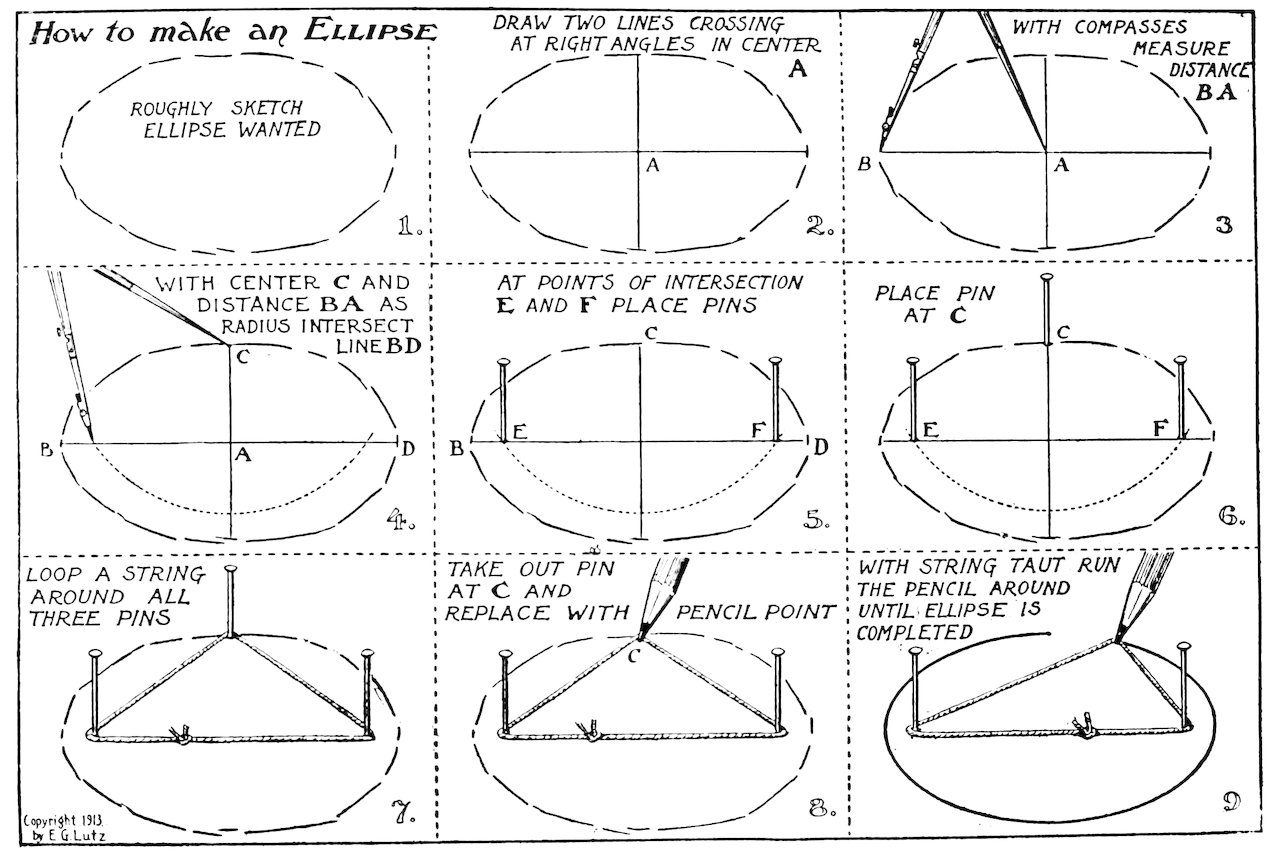 How to make an ELLIPSE
ROUGHLY SKETCH
ELLIPSE WANTED
1.
DRAW TWO LINES CROSSING
AT RIGHT ANGLES IN CENTER
A
A
2.
WITH COMPASSES
MEASURE
DISTANCE
BA
B
A
3
WITH CENTER C AND
DISTANCE BA AS
RADIUS INTERSECT
LINE BD
C
B
A
D
4.
AT POINTS OF INTERSECTION
E AND F PLACE PINS
C
E
F
B
D
5.
PLACE PIN
AT C
C
E
F
6.
LOOP A STRING
AROUND ALL
THREE PINS
7.
Copyright 1913
by E.G. Lutz
TAKE OUT PIN
AT C AND
REPLACE WITH PENCIL POINT
C
8.
WITH STRING TAUT RUN
THE PENCIL AROUND
UNTIL ELLIPSE IS
COMPLETED
9